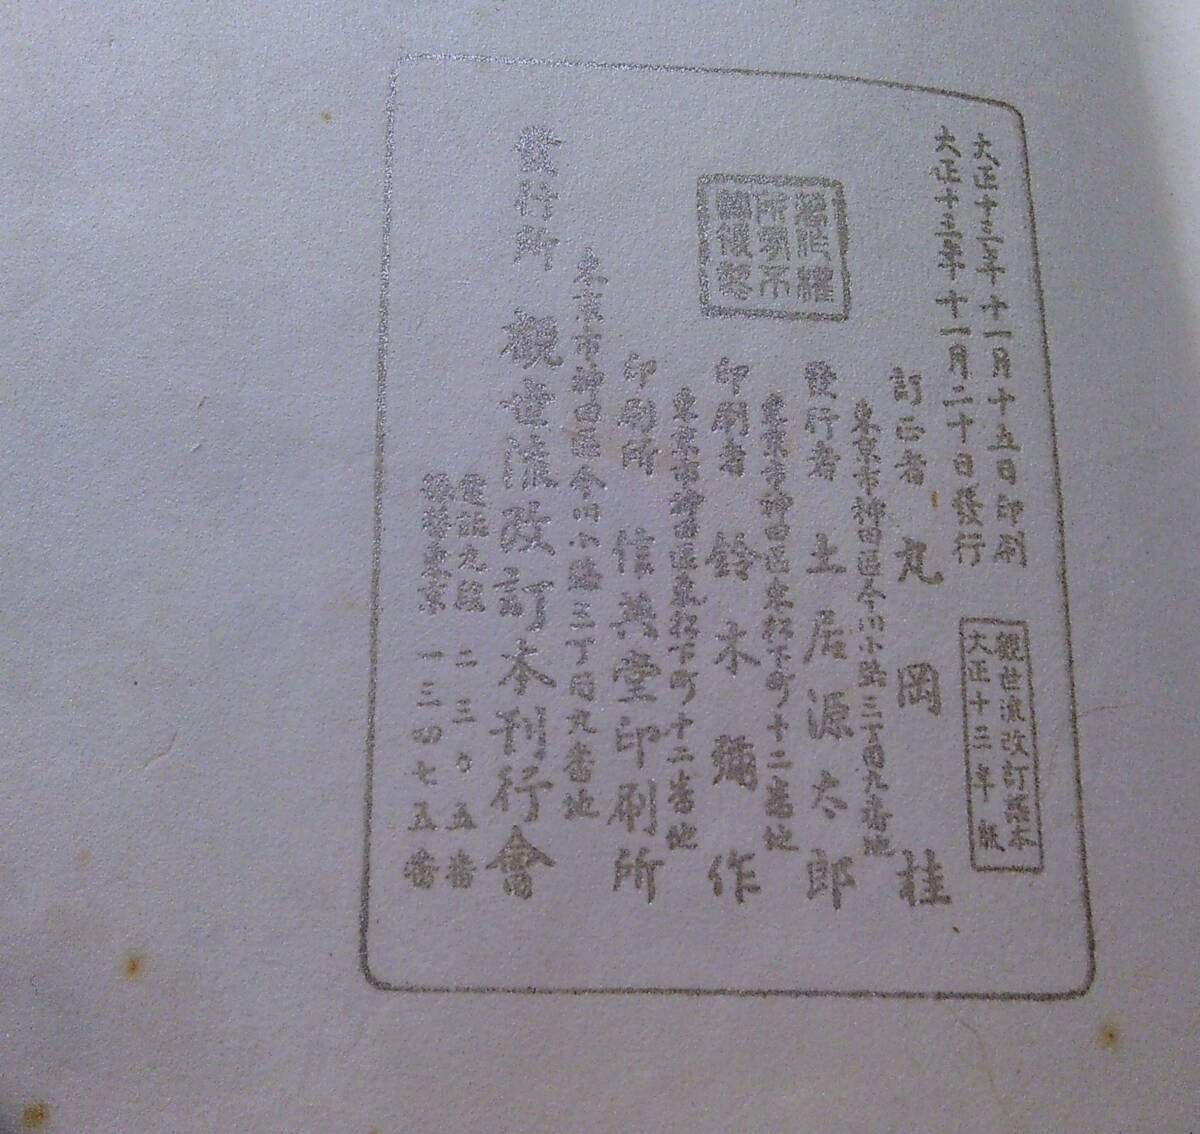 大正十三年十一月十五日印刷
大正十三年十一月二十日發行
觀世流改訂謠本
大正十三年版
訂正者 丸岡桂
東京市神田區今川小路三丁目九番地
發行者 土居源太郎
東京市神田區東松下町十二番地
印刷者 鈴木彌作
東京市神田區東松下町十二番地
印刷所 信英堂印刷所
東京市神田區今川小路三丁目九番地
發行所 觀世流改訂本刊行會
電話九段 二三〇五番
振替東京 一三四七五番